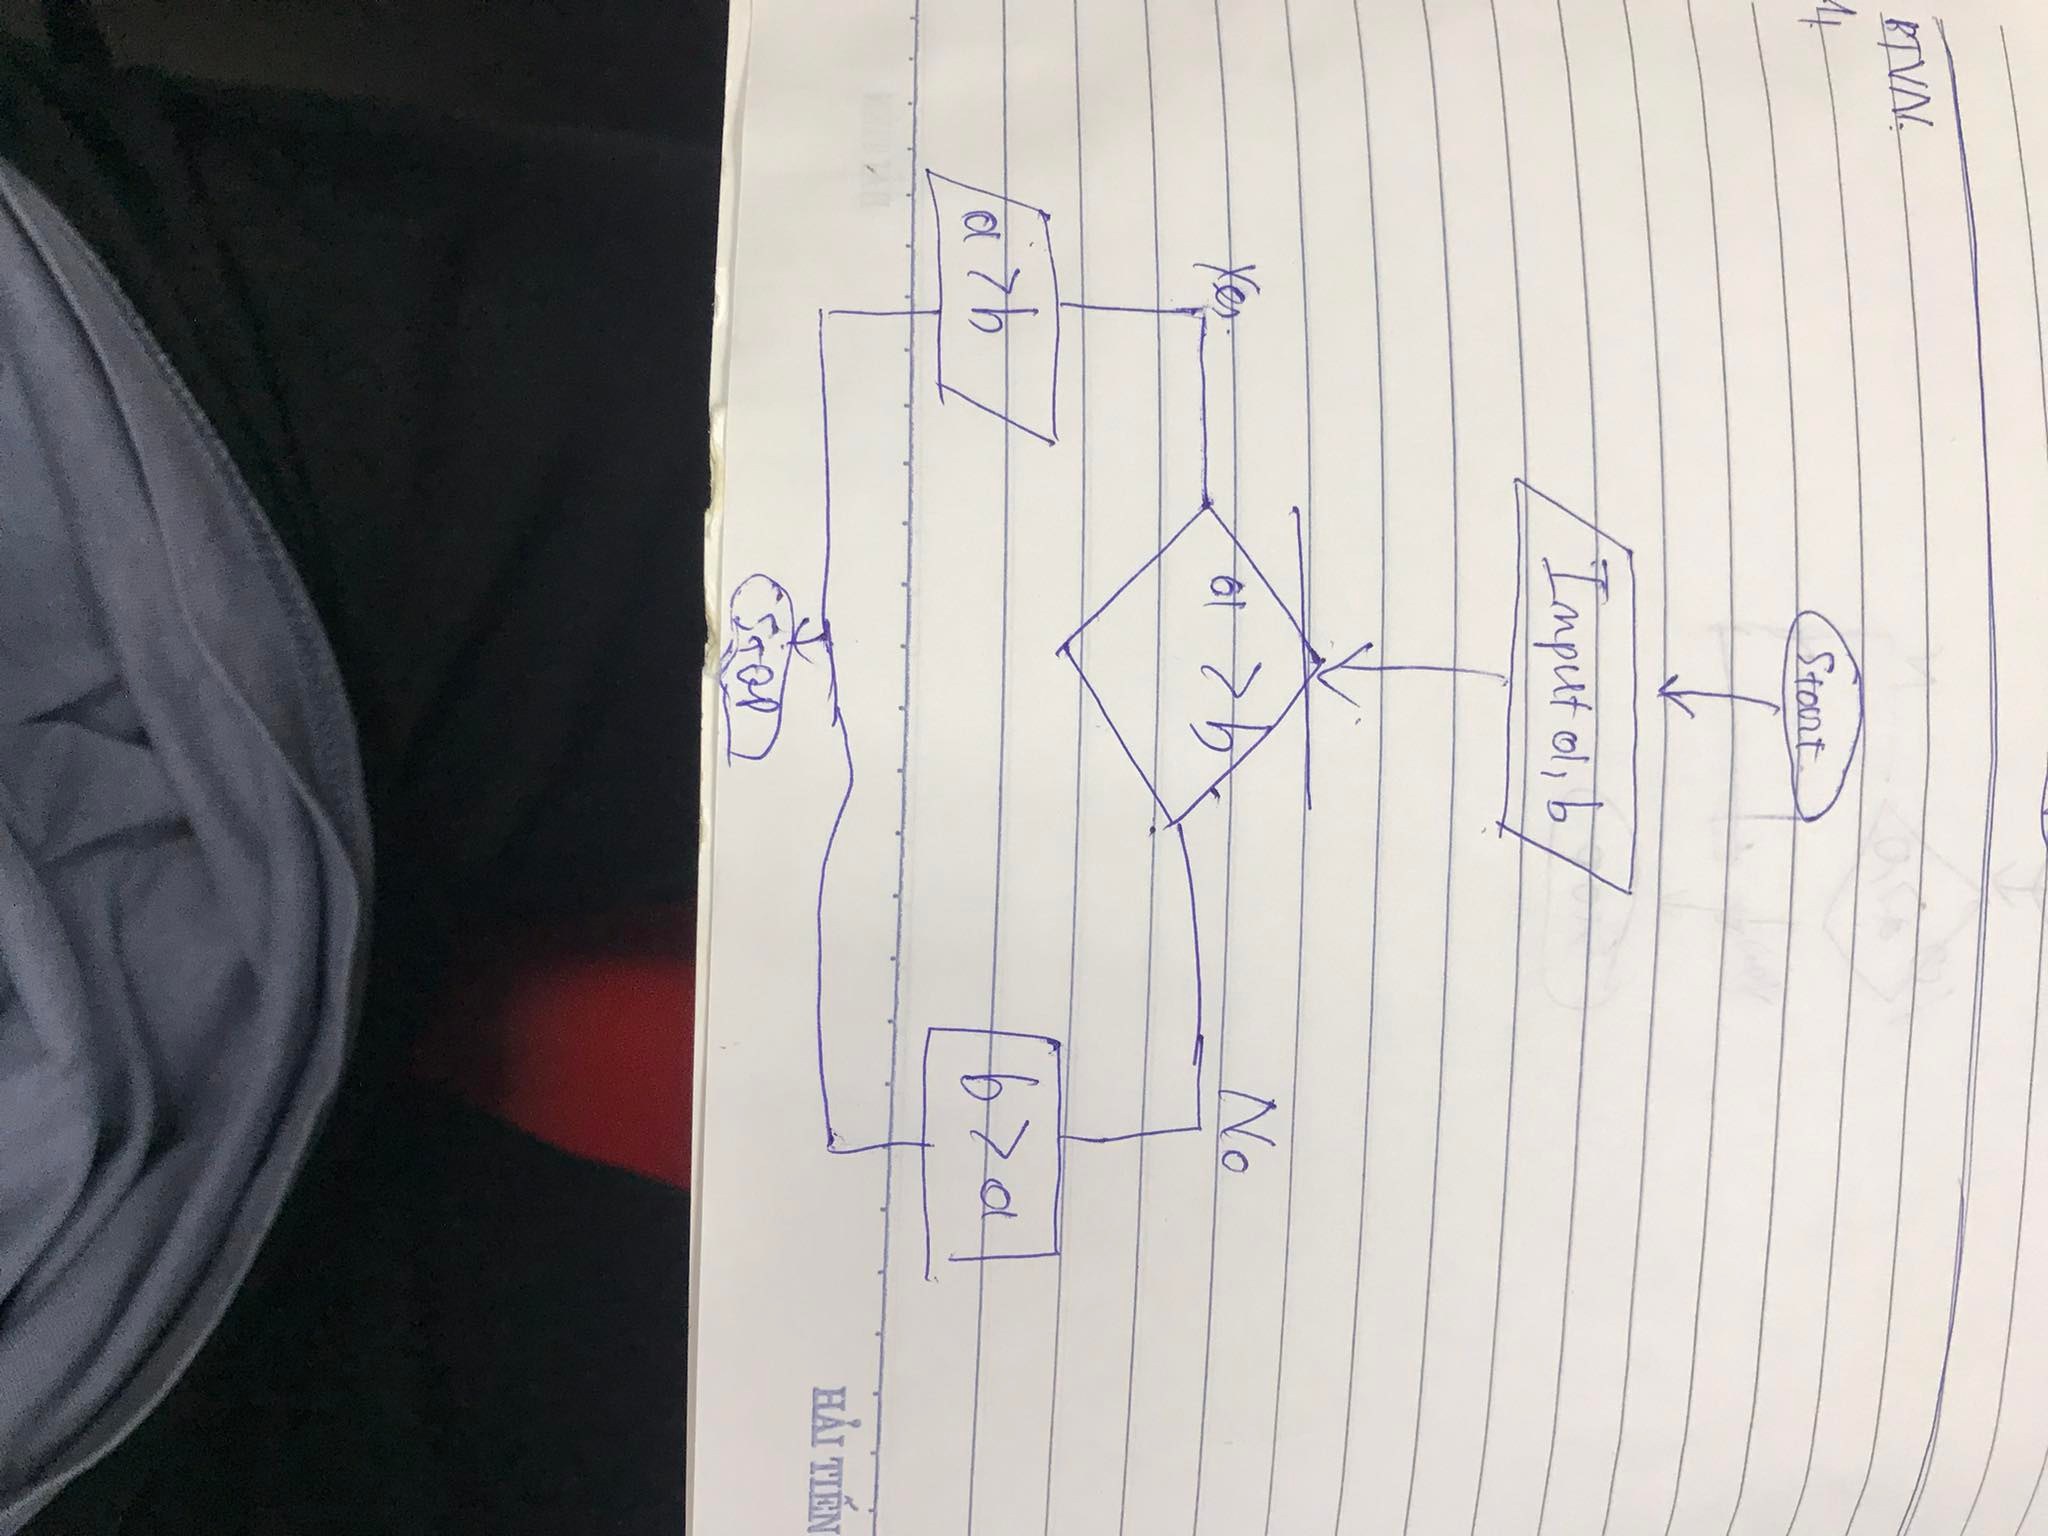 BTVN.
1,
Start
Input a, b
a > b
Yes.
No
a > b
b > a
STOP
HẢI TIẾN